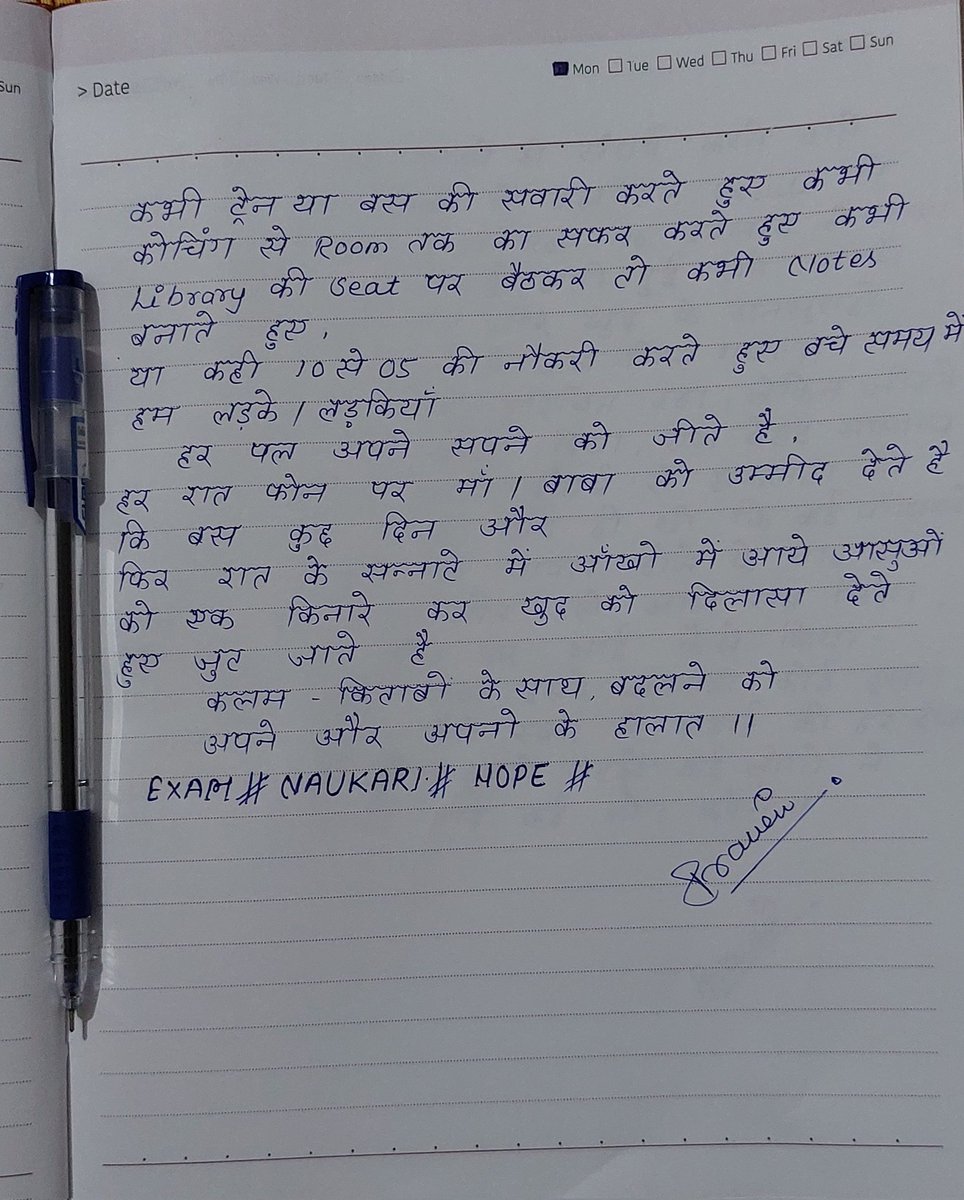 Sun
> Date
Mon Tue Wed Thu Fri Sat Sun
कभी ट्रेन या बस की सवारी करते हुए कभी
कोचिंग से Room तक का सफर करते हुए कभी
Library की Seat पर बैठकर तो कभी Notes
बनाते हुए,
या कही 10 से 05 की नौकरी करते हुए बचे समय में
हम लड़के / लड़कियाँ
हर पल अपने सपने को जीते है,
हर रात फोन पर माँ / बाबा को उम्मीद देते है
कि बस कुछ दिन और
फिर रात के सन्नाटे में आँखो में आये आसुओं
को एक किनारे कर खुद को दिलासा देते
हुए जुट जाते है
कलम - किताबों के साथ, बदलने को
अपने और अपनो के हालात ।।
EXAM # NAUKARI # HOPE #
Praveen